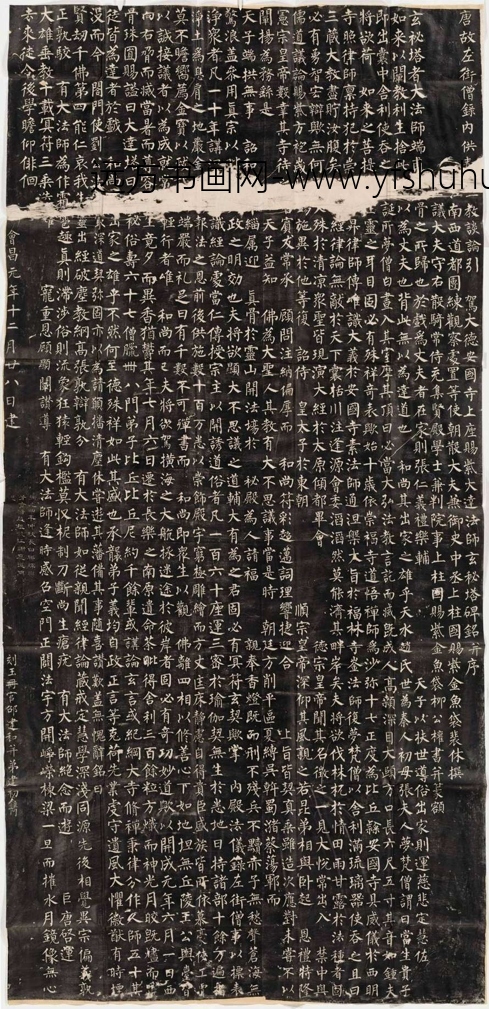 唐故左街僧録内供奉
教談論引 駕大德安國寺上座賜紫大達法師玄秘塔碑銘并序
南西道都團練觀察處置等使朝散大夫兼御史中丞上柱國賜紫金魚袋裴休撰
議大夫守右散騎常侍充集賢殿學士兼判院事上柱國賜紫金魚袋柳公權書并篆額
玄秘塔者大法師端甫 骨之所歸也於戲為丈夫者在家則張仁義禮樂輔 天子以扶世導俗出家則運慈悲定慧佐
如來以闡教利生捨 以為丈夫也背此無以為達道也 和尚其出家之雄乎天水趙氏世為秦人初母張夫人夢梵僧謂曰當生貴子即
出囊中舍利使吞之 誕所夢僧白晝入其室摩其頂曰必當大弘法教言訖而滅既成人高顙深目大頤方口長六尺五寸其音如鍾夫
將欲荷 如來之菩提 靈之耳目固必有殊祥奇表歟始十歲依崇福寺道悟禪師為沙弥十七正度為比丘隸安國寺具威儀於西明
寺照律師稟持犯於崇 昇律師傳唯識大義於安國寺素法師通涅槃大旨於福林寺崟法師復夢梵僧以舍利滿琉璃器使吞之且曰
三藏大教盡貯汝腹矣 經律論無敵於天下囊括川注逢源會委滔滔然莫能濟其畔岸矣夫將欲伐株杌於情田雨甘露於法種者固
必有勇智宏辯歟無何 殊於清凉衆聖皆現演大經於太原傾都畢會 德宗皇帝聞其名徵之一見大悅常出入 禁中與
儒道議論賜紫方袍歲 施異於他等復 詔侍 皇太子於東朝 順宗皇帝深仰其風親之若昆弟相與卧起 恩禮特隆
憲宗皇帝數幸其寺待 賓友常承 顧問注納偏厚而 和尚符彩超邁詞理響捷迎合 上旨皆契真乘雖造次應對未嘗不以
闡揚為務繇是 天子益知 佛為大聖人其教有大不思議事當是時 朝廷方削平區夏縛吳斡蜀瀦蔡蕩鄆而
天子端拱無事 詔 緇屬迎 真骨於靈山開法場於 秘殿為人請福 親奉香燈既而刑不殘兵不黷赤子無愁聲蒼海無
驚浪蓋參用真宗以 政之明効也夫將欲顯大不思議之道輔大有為之君固必有冥符玄契歟掌 內殿法儀錄左街僧事以標表
淨衆者凡一十年講 識經論處當仁傳授宗主以開誘道俗者凡一百六十座運三密於瑜伽契無生於悉地日持諸部十餘萬遍指
淨土為息肩之地嚴金 報法之恩前後供施數十百萬悉以崇飾殿宇窮極雕繪而方丈匡床靜慮自得貴臣盛族皆所依慕豪俠工賈
莫不瞻嚮薦金寶以 端嚴而禮足日有千數不可殫書而 和尚即衆生以觀 佛離四相以修善心下如地坦無丘陵王公輿臺皆
以誠接議者以為成就 輕行者唯 和尚而已夫將欲駕橫海之大航拯迷途於彼岸者固必有奇功妙道歟以開成元年六月一日西
向右脅而滅當暑而尊容 生竟夕而異香猶鬱其年七月六日遷於長樂之南原遺命荼毗得舍利三百餘粒方熾而神光月皎既燼而靈
骨珠圓賜謚曰大達塔 秘俗壽六十七僧臘卌八門弟子比丘比丘尼約千餘輩或講論玄言或紀綱大寺修禪秉律分作人師五十其
徒皆為達者於戲 家之雄乎不然何至德殊祥如此其盛也承襲弟子義均自政正言等克荷先業虔守遺風大懼徽猷有時堙
沒而今 閤門使劉公 深道契弥固亦以為請願播清塵休嘗遊其藩備其事隨喜讚歎蓋無愧辭銘曰
賢劫千佛第四能仁哀我生 靈出經破塵教網高張孰辯孰分 有大法師如從親聞經律論藏戒定慧學深淺同源先後相覺異宗偏義孰
正孰駮 有大法師為作 趣真則滯涉俗則流象狂猿輕鈎檻莫收柅制刀斷尚生瘡疣 有大法師絕念而遊 巨唐啓運
大雄垂教千載冥符三乘 寵重恩顧顯闡讚導 有大法師逢時感召空門正闢法宇方開崢嶸棟梁一旦而摧水月鏡像無心
去來徒令後學瞻仰徘徊
會昌元年十二月廿八日建
刻玉册官邵建和并弟建初鐫
远方书画网-www.yfshuhu